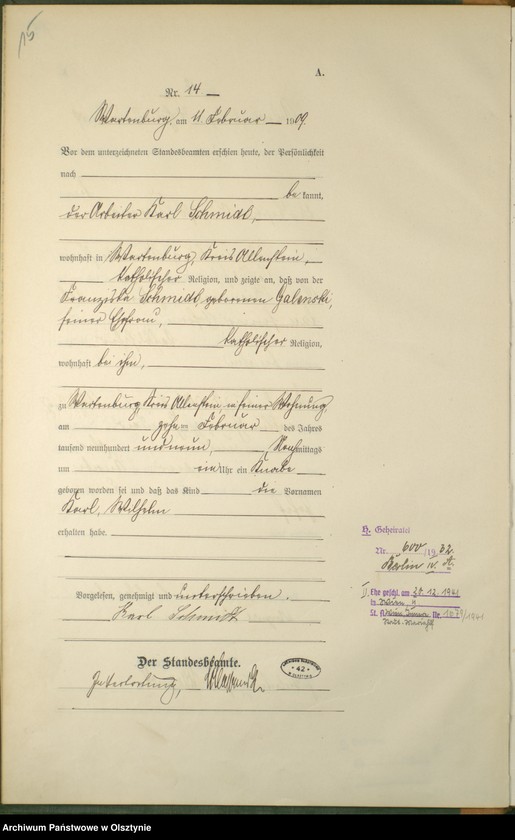 15
A.
Nr. 14
Wartenburg, am 11. Februar 1909.
Vor dem unterzeichneten Standesbeamten erschien heute, der Persönlichkeit
nach
be kannt,
der Arbeiter Karl Schmidt,
wohnhaft in Wartenburg, Kreis Allenstein,
katholischer Religion, und zeigte an, daß von der
Franziska Schmidt, geborenen Galenski,
seiner Ehefrau,
katholischer Religion,
wohnhaft bei ihm,
zu Wartenburg Kreis Allenstein in seiner Wohnung
am zehnten Februar des Jahres
tausend neunhundert und neun, Nachmittags
um ein Uhr ein Knabe
geboren worden sei und daß das Kind die Vornamen
Karl, Wilhelm
erhalten habe.
Vorgelesen, genehmigt und unterschrieben.
Karl Schmidt
Der Standesbeamte.
In Vertretung,
42
I. Geheiratet
Nr. 600/1932.
Berlin IV. A.
II. Ehe geschl. am 27.12.1941
in
St. A. Nr. 1079/1941
Archiwum Państwowe w Olsztynie